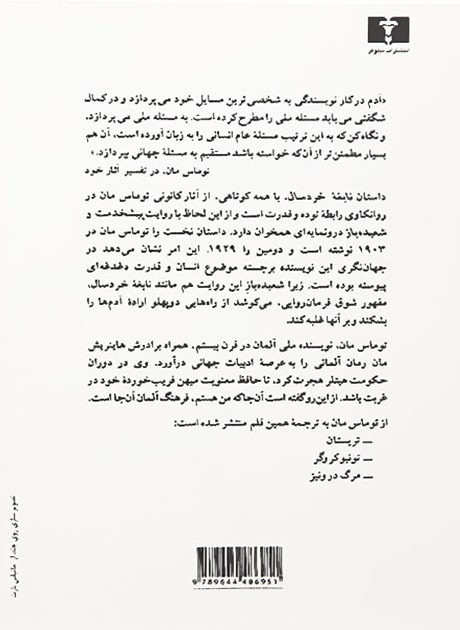 انتشارات نیلوفر
«آدم در کار نویسندگی به شخصی‌ترین مسایل خود می‌پردازد و در کمال
شگفتی می‌یابد مسئله ملی را مطرح کرده است. به مسئله ملی می‌پردازد.
و نگاه کن که به این ترتیب مسئلهٔ عام انسانی را به زبان آورده است، آن هم
بسیار مطمئن‌تر از آن‌که خواسته باشد مستقیم به مسئلهٔ جهانی بپردازد.»
توماس مان، در تفسیر آثار خود
داستان نابغهٔ خردسال، با همه کوتاهی، از آثار کانونی توماس مان در
روانکاوی رابطهٔ توده و قدرت است و از این لحاظ با روایت پیشخدمت و
شعبده‌باز درونمایه‌ای همخوان دارد. داستان نخست را توماس مان در
۱۹۰۳ نوشته است و دومین را ۱۹۲۹. این امر نشان می‌دهد در
جهان‌نگری این نویسنده برجسته موضوع انسان و قدرت دغدغه‌ای
پیوسته بوده است. زیرا شعبده‌باز این روایت هم مانند نابغهٔ خردسال،
مقهور شوق فرمان‌روایی، می‌کوشد از راه‌هایی دوپهلو ارادهٔ آدم‌ها را
بشکند و بر آنها غلبه کند.
توماس مان، نویسنده ملی آلمان در قرن بیستم، همراه برادرش هاینریش
مان رمان آلمانی را به عرصهٔ ادبیات جهانی درآورد. وی در دوران
حکومت هیتلر هجرت کرد، تا حافظ معنویت میهن فریب‌خوردهٔ خود در
غربت باشد. از این‌رو گفته است آن‌جا که من هستم، فرهنگ آلمان آن‌جا است.
از توماس مان به ترجمهٔ همین قلم منتشر شده است:
ــ تریستان
ــ تونیو کروگر
ــ مرگ در ونیز
تصویرسازی روی جلد از
9 789644 486951